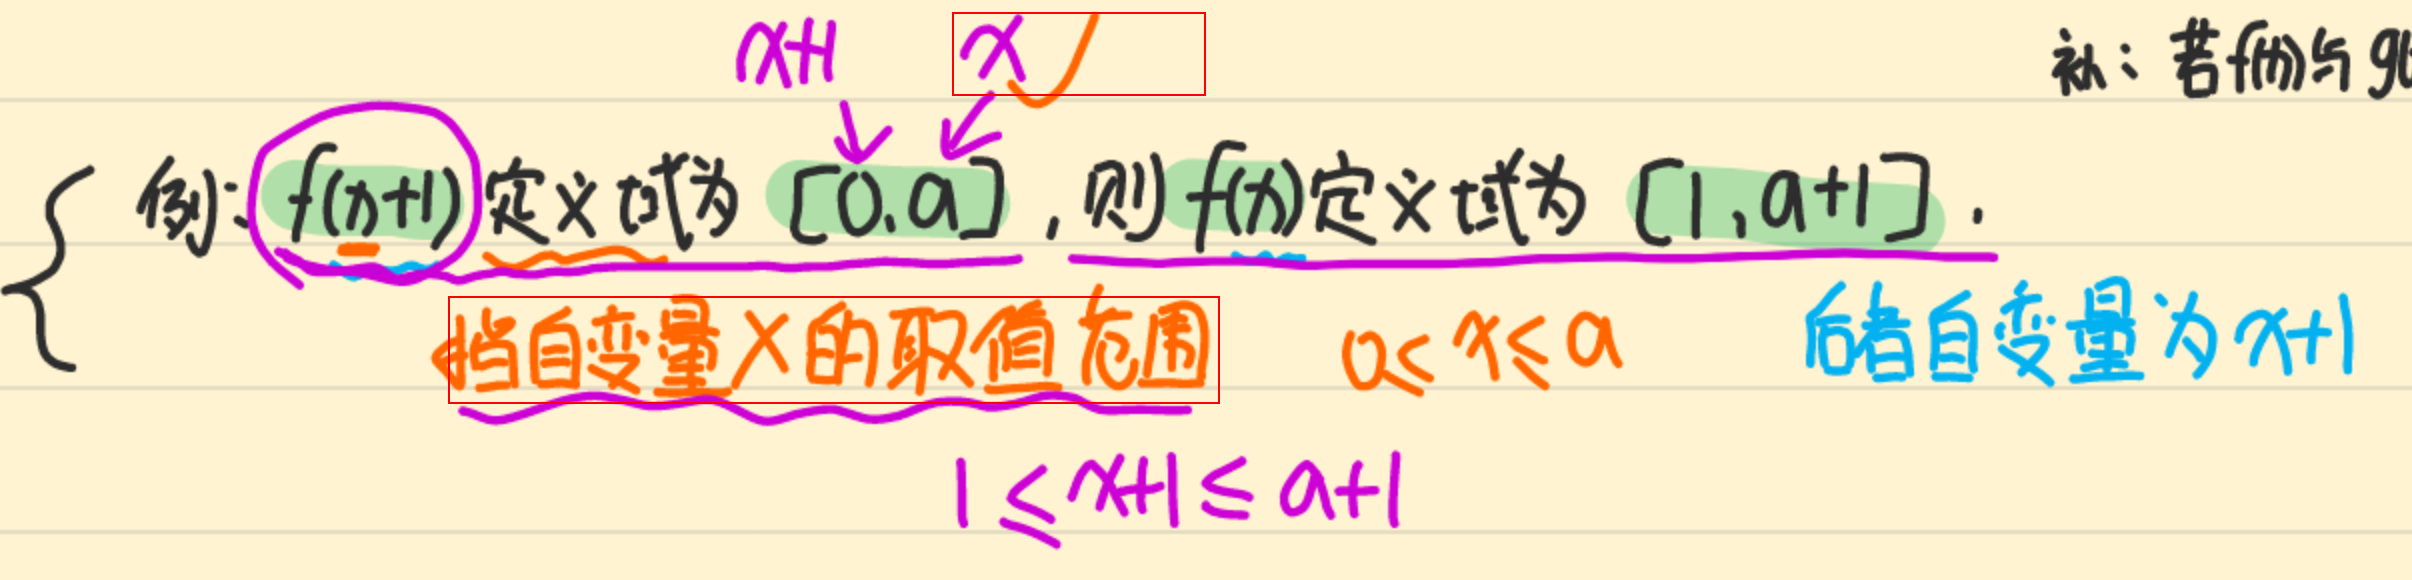 x+1 x
补：若f(x)与g(
例：f(x+1)定义域为[0,a]，则f(x)定义域为[1,a+1].
指自变量X的取值范围 0≤x≤a 后者自变量为x+1
1≤x+1≤a+1